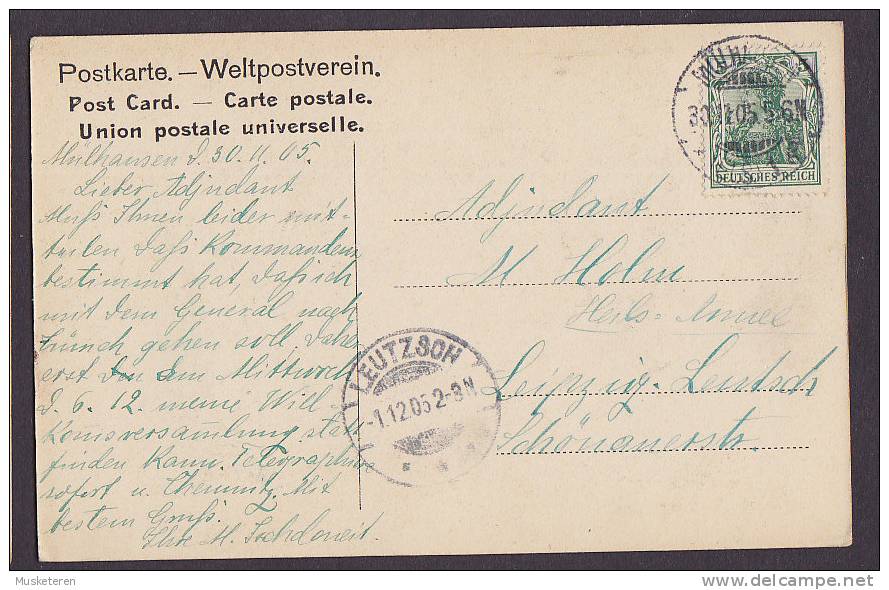 Postkarte. — Weltpostverein.
Post Card. — Carte postale.
Union postale universelle.
Mülhausen d. 30.11.05.
Lieber Adjudant
Muß Ihnen leider mit-
teilen daß Kommandeur
bestimmt hat, daß ich
mit dem General nach
gehen soll daher
erst den Mittwoch
d. 6. 12. meine Will-
komsversammlung statt-
finden kann. Telegraphire
sofort n. Chemnitz. Mit
bestem Gruß.
Ihre M.
30.11.05.5-6N
DEUTSCHES REICH
Adjudant
M Holm
Heils-Armee
Leipzig-Leutsch
Schönauerstr.
LEUTZSCH
-1.12.05.2-3N
Musketeren
delcampe.net